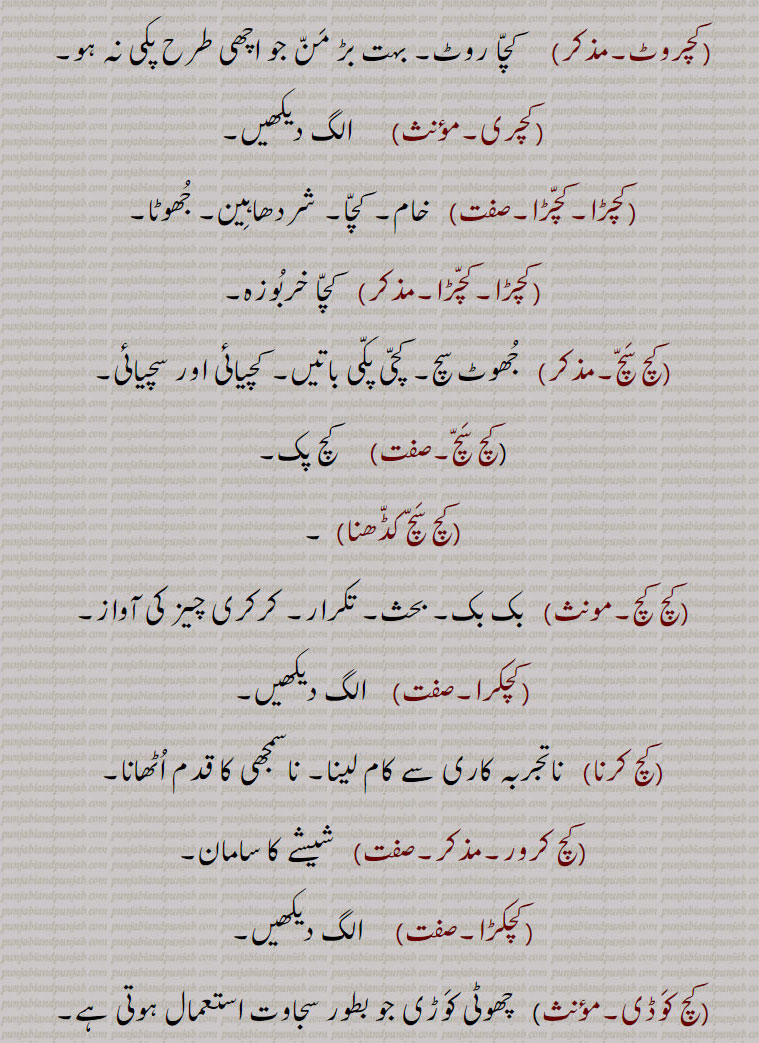 (کچروٹ۔مذکر) کچّا روٹ۔ بہت بڑ مَنّ جو اچھی طرح پکی نہ ہو۔
(کچری۔مؤنث) الگ دیکھیں۔
(کچڑا۔کچّڑا۔صفت) خام۔ کچّا۔ شردھاہِین۔ جُھوٹا۔
(کچڑا۔کچّڑا۔مذکر) کچّا خربُوزہ۔
(کچ سَچّ۔مذکر) جُھوٹ سچ۔ کچّی پکّی باتیں۔ کچیائی اور سچیائی۔
(کچ سَچّ۔صفت) کچ پک۔
(کچ سَچّ کڈّھنا) ۔
(کچ کچ۔مونث) بک بک۔ بحث۔ تکرار۔ کرکری چیز کی آواز۔
(کچکرا۔صفت) الگ دیکھیں۔
(کچ کرنا) ناتجربہ کاری سے کام لینا۔ ناسمجھی کا قدم اُٹھانا۔
(کچ کرور۔مذکر۔صفت) شیشے کا سامان۔
(کچکڑا۔صفت) الگ دیکھیں۔
(کچ کوَڈی۔مؤنث) چھوٹی کوَڑی جو بطور سجاوت استعمال ہوتی ہے۔